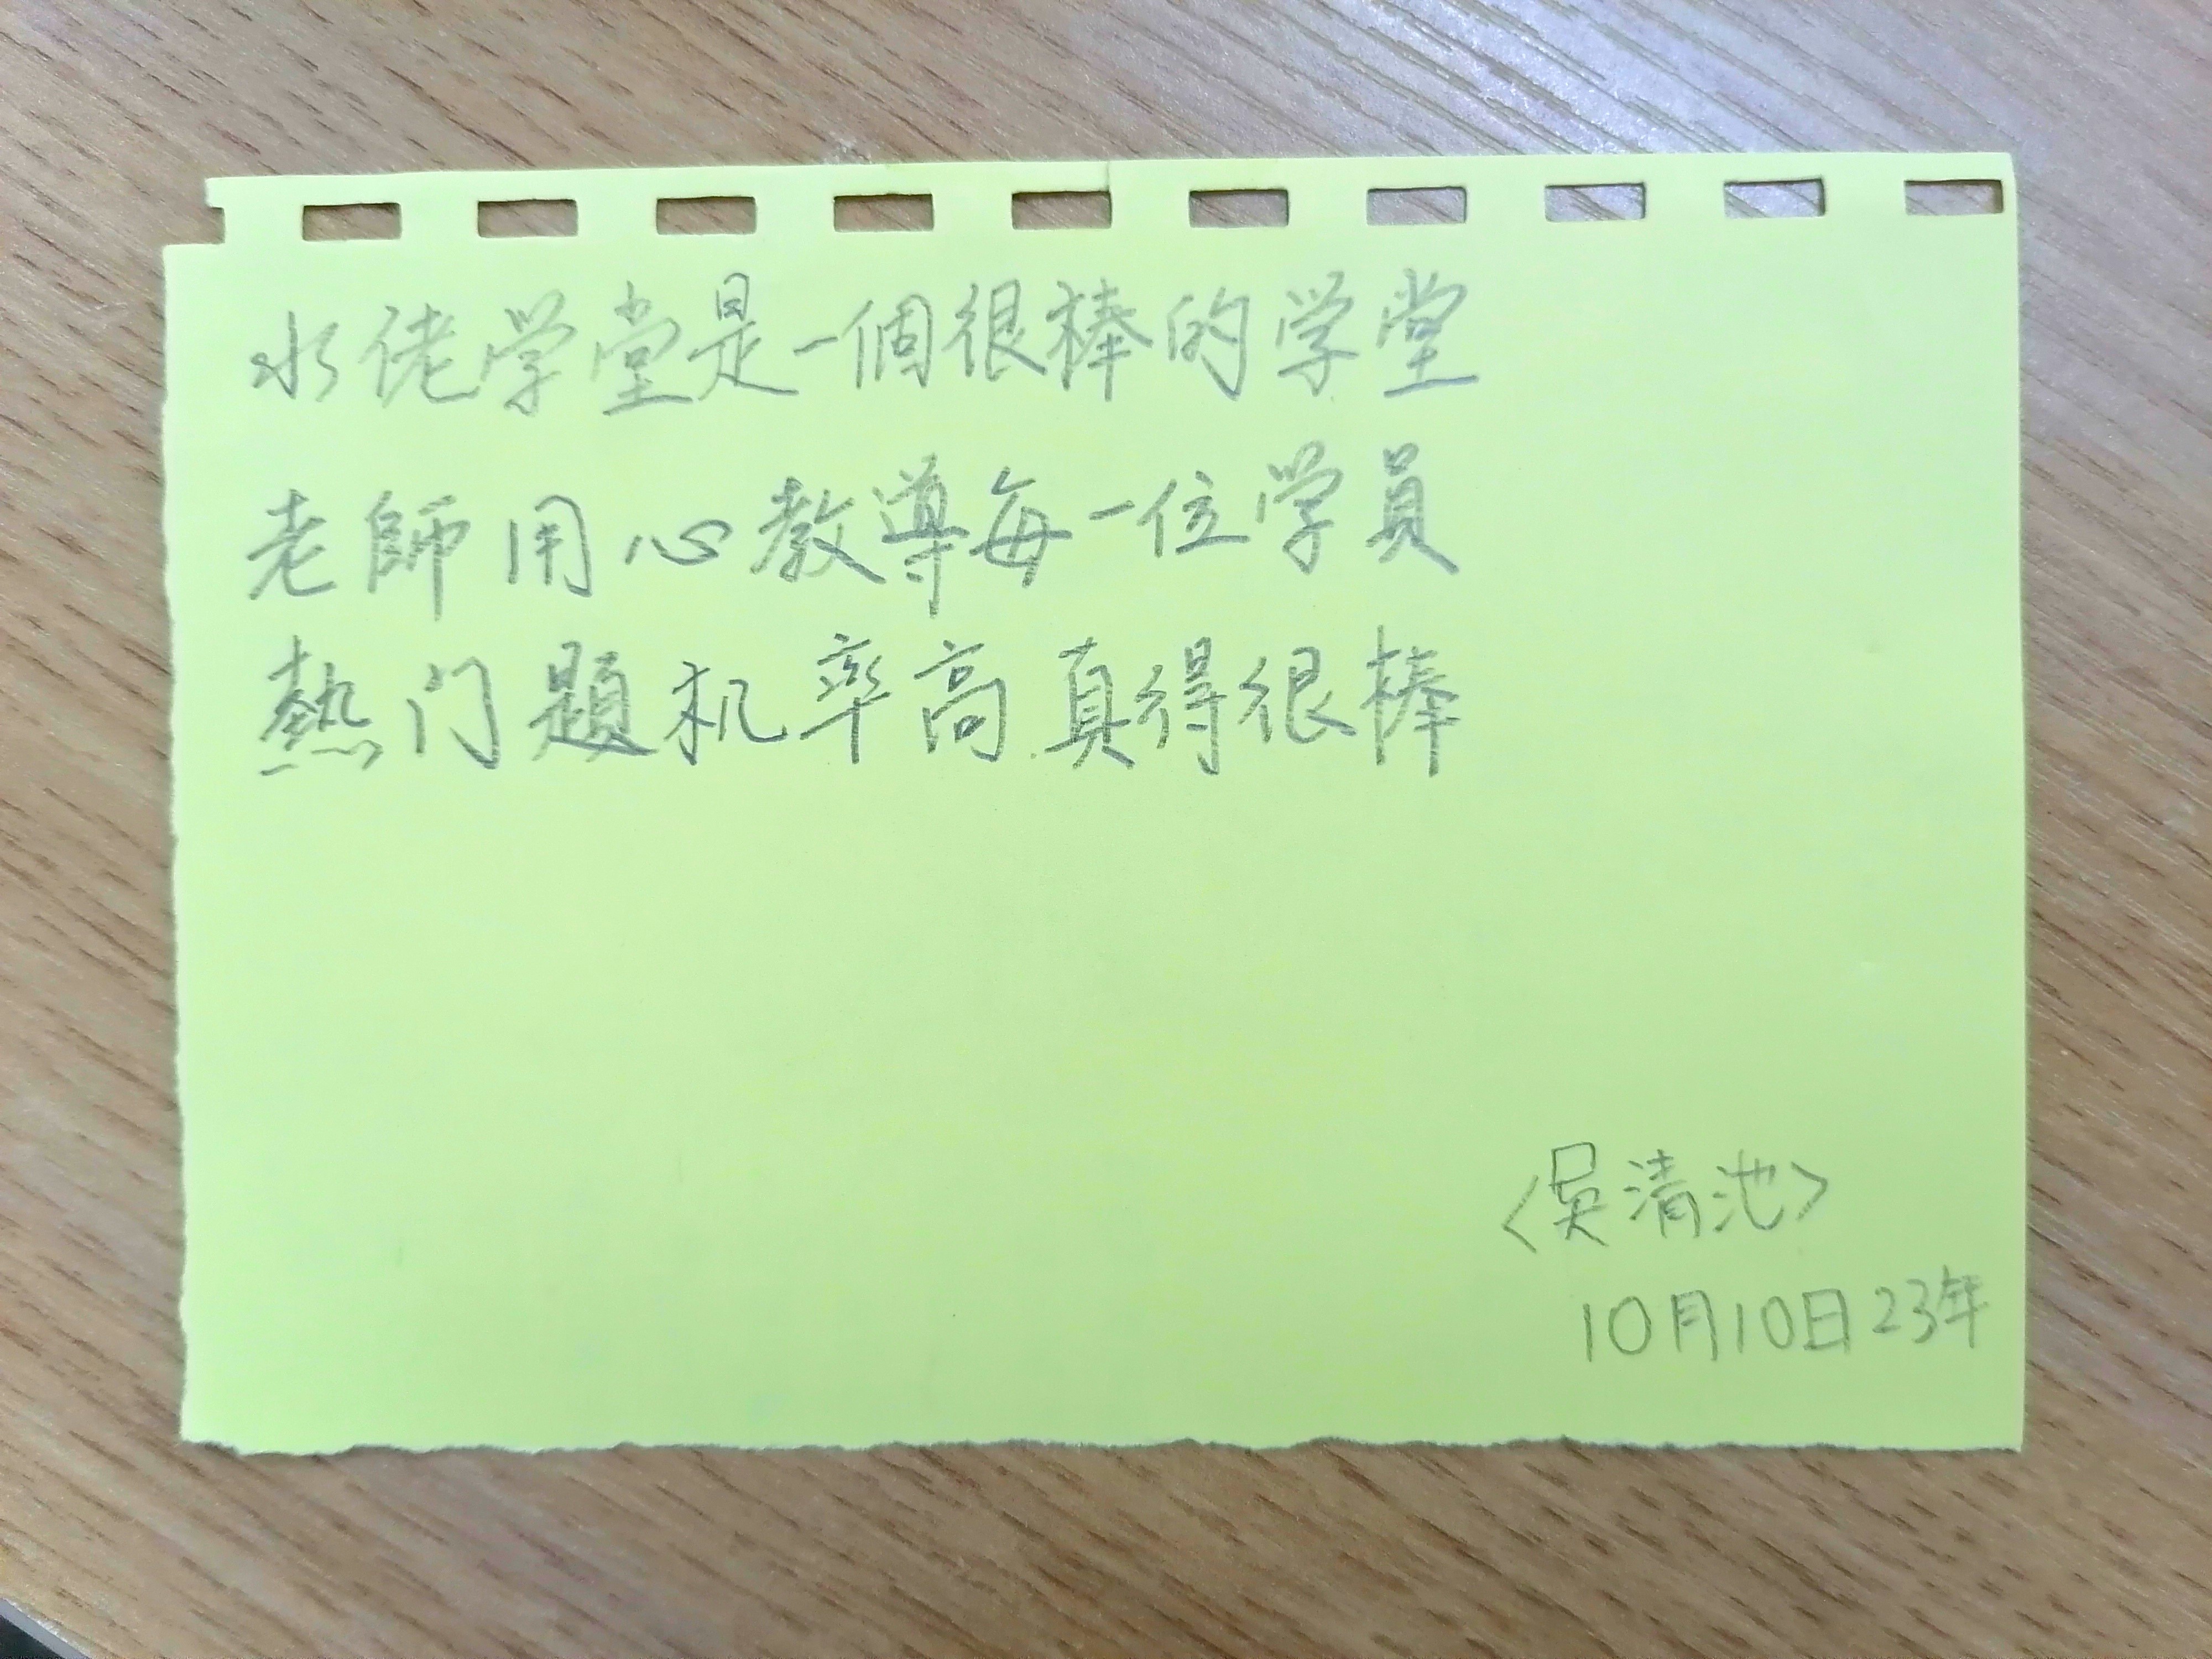 水佬学堂是一個很棒的学堂
老師用心教導每一位学員
熱门題机率高真得很棒
<吳清池>
10月10日23年